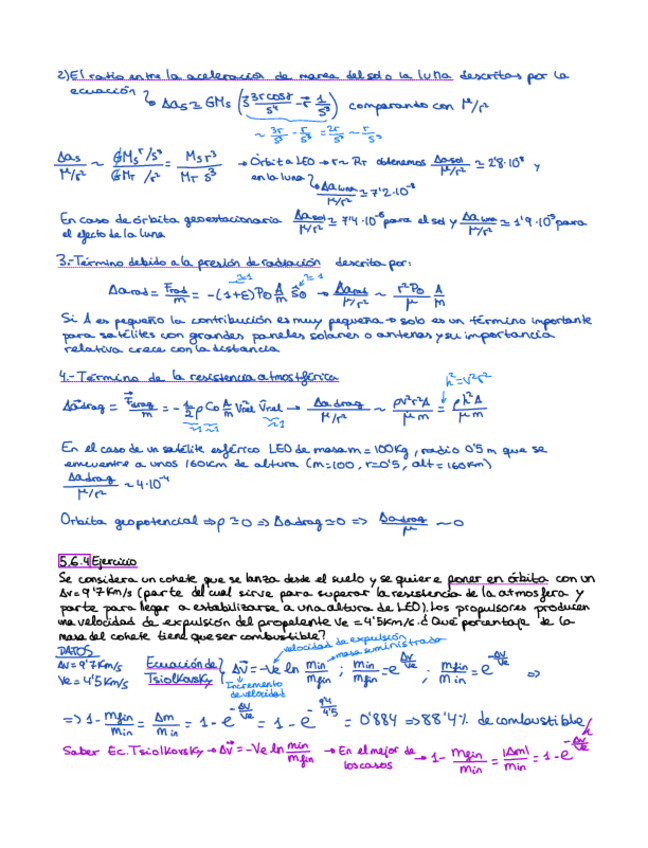 2) El ratio entre la aceleración de marea del sol o la luna descritas por la
ecuación ↳ Δas ≃ GMs (s⃗ 3rcosγ/s⁴ - r⃗ 1/s³) comparando con μ/r²
~ 3r/s³ - r/s³ = 2r/s³ ~ r/s³
Δas/μ/r² ~ GMs r/s³ / GMT /r² = Ms r³ / MT s³ → Órbita LEO → r ~ RT obtenemos Δasol/μ/r² ≃ 2'8·10⁻⁸ y
en la luna? ↳ Δaluna/μ/r² ≃ 7'2·10⁻⁸
En caso de órbita geoestacionaria Δasol/μ/r² ≃ 7'4·10⁻⁶ para el sol y Δaluna/μ/r² ≃ 1'9·10⁻⁵ para
el efecto de la luna
3.- Término debido a la presión de radiación descrita por:
Δarad = Frad/m = -(1+ε)P⊙ A/m ŝ⊙ → Δarad/μ/r² ~ r²P⊙/μ A/m
Si A es pequeño la contribución es muy pequeña → solo es un término importante
para satélites con grandes paneles solares o antenas y su importancia
relativa crece con la distancia
4.- Término de la resistencia atmosférica
h² = v²r²
Δa⃗drag = F⃗drag/m = -1/2 ρ CD A/m v²rel v̂rel → Δadrag/μ/r² ~ ρv²r²A/μm = ρh²A/μm
~1 ~1 ~1
En el caso de un satélite esférico LEO de masa m=100Kg, radio 0'5 m que se
encuentre a unos 160km de altura (m=100, r=0'5, alt=160km)
Δadrag/μ/r² ~ 4·10⁻⁴
Órbita geopotencial ⇒ ρ≃0 ⇒ Δadrag≃0 ⇒ Δadrag/μ ~ 0
5.6.4 Ejercicio
Se considera un cohete que se lanza desde el suelo y se quiere poner en órbita con un
Δv = 9'7 Km/s (parte del cual sirve para superar la resistencia de la atmosfera y
parte para llegar a estabilizarse a una altura de LEO). Los propulsores producen
una velocidad de expulsión del propelente Ve = 4'5Km/s. ¿Qué porcentaje de la
masa del cohete tiene que ser combustible?
DATOS
Δv = 9'7 Km/s
Ve = 4'5 Km/s
Ecuación de Tsiolkovsky
velocidad de expulsión
masa suministrada
Δv⃗ = -Ve ln min/mfin ; min/mfin = e^Δv/Ve ; mfin/min = e^-Δv/Ve ⇒
Incremento
de velocidad
⇒ 1 - mfin/min = Δm/min = 1 - e^-Δv/Ve = 1 - e^-9'7/4'5 = 0'884 ⇒ 88'4% de combustible
Saber Ec. Tsiolkovsky → Δv⃗ = -Ve ln min/mfin → En el mejor de
los casos → 1 - mfin/min = |Δm|/min = 1 - e^-Δv/Ve